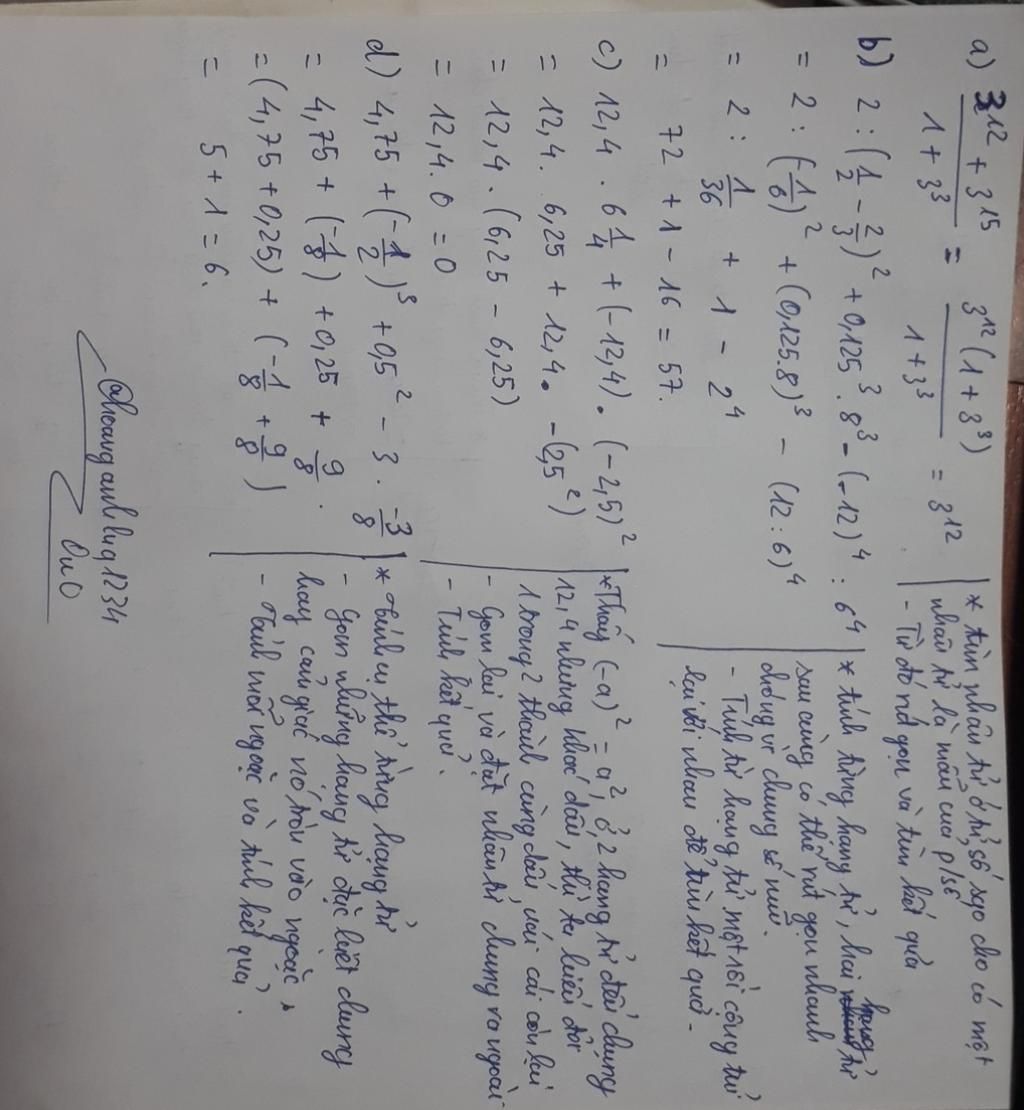 a) \frac{3^{12} + 3^{15}}{1 + 3^3} = \frac{3^{12}(1 + 3^3)}{1 + 3^3} = 3^{12}
* tìm nhân tử ở tử số sao cho có một
nhân tử là mẫu của p/số
- Từ đó rút gọn và tìm kết quả
b) 2 : (\frac{1}{2} - \frac{2}{3})^2 + 0,125^3 . 8^3 - (-12)^4 : 6^4
= 2 : (-\frac{1}{6})^2 + (0,125.8)^3 - (12 : 6)^4
= 2 : \frac{1}{36} + 1 - 2^4
= 72 + 1 - 16 = 57.
* tính từng hạng tử, hai hạng tử
sau cùng có thể rút gọn nhanh
chóng vì chung số mũ.
- Tính từ hạng tử một rồi cộng trừ
lại với nhau để tìm kết quả -
c) 12,4 . 6\frac{1}{4} + (-12,4) . (-2,5)^2
= 12,4 . 6,25 + 12,4 . -(2,5^2)
= 12,4 . (6,25 - 6,25)
= 12,4 . 0 = 0
* Thấy (-a)^2 = a^2, ở 2 hạng tử đều chung
12,4 nhưng khác dấu, thì ta biến đổi
1 trong 2 thành cùng dấu với cái còn lại
- Gom lại và đặt nhân tử chung ra ngoài
- Tính kết quả.
d) 4,75 + (-\frac{1}{2})^3 + 0,5^2 - 3 . \frac{-3}{8}
= 4,75 + (-\frac{1}{8}) + 0,25 + \frac{9}{8} .
= (4,75 + 0,25) + (-\frac{1}{8} + \frac{9}{8})
= 5 + 1 = 6.
* tính cụ thể từng hạng tử
- Gom những hạng tử đặc biệt chung
hay cảm giác nó tròn vào ngoặc.
- Tính mỗi ngoặc và tính kết quả.
@hoanganhluq1234